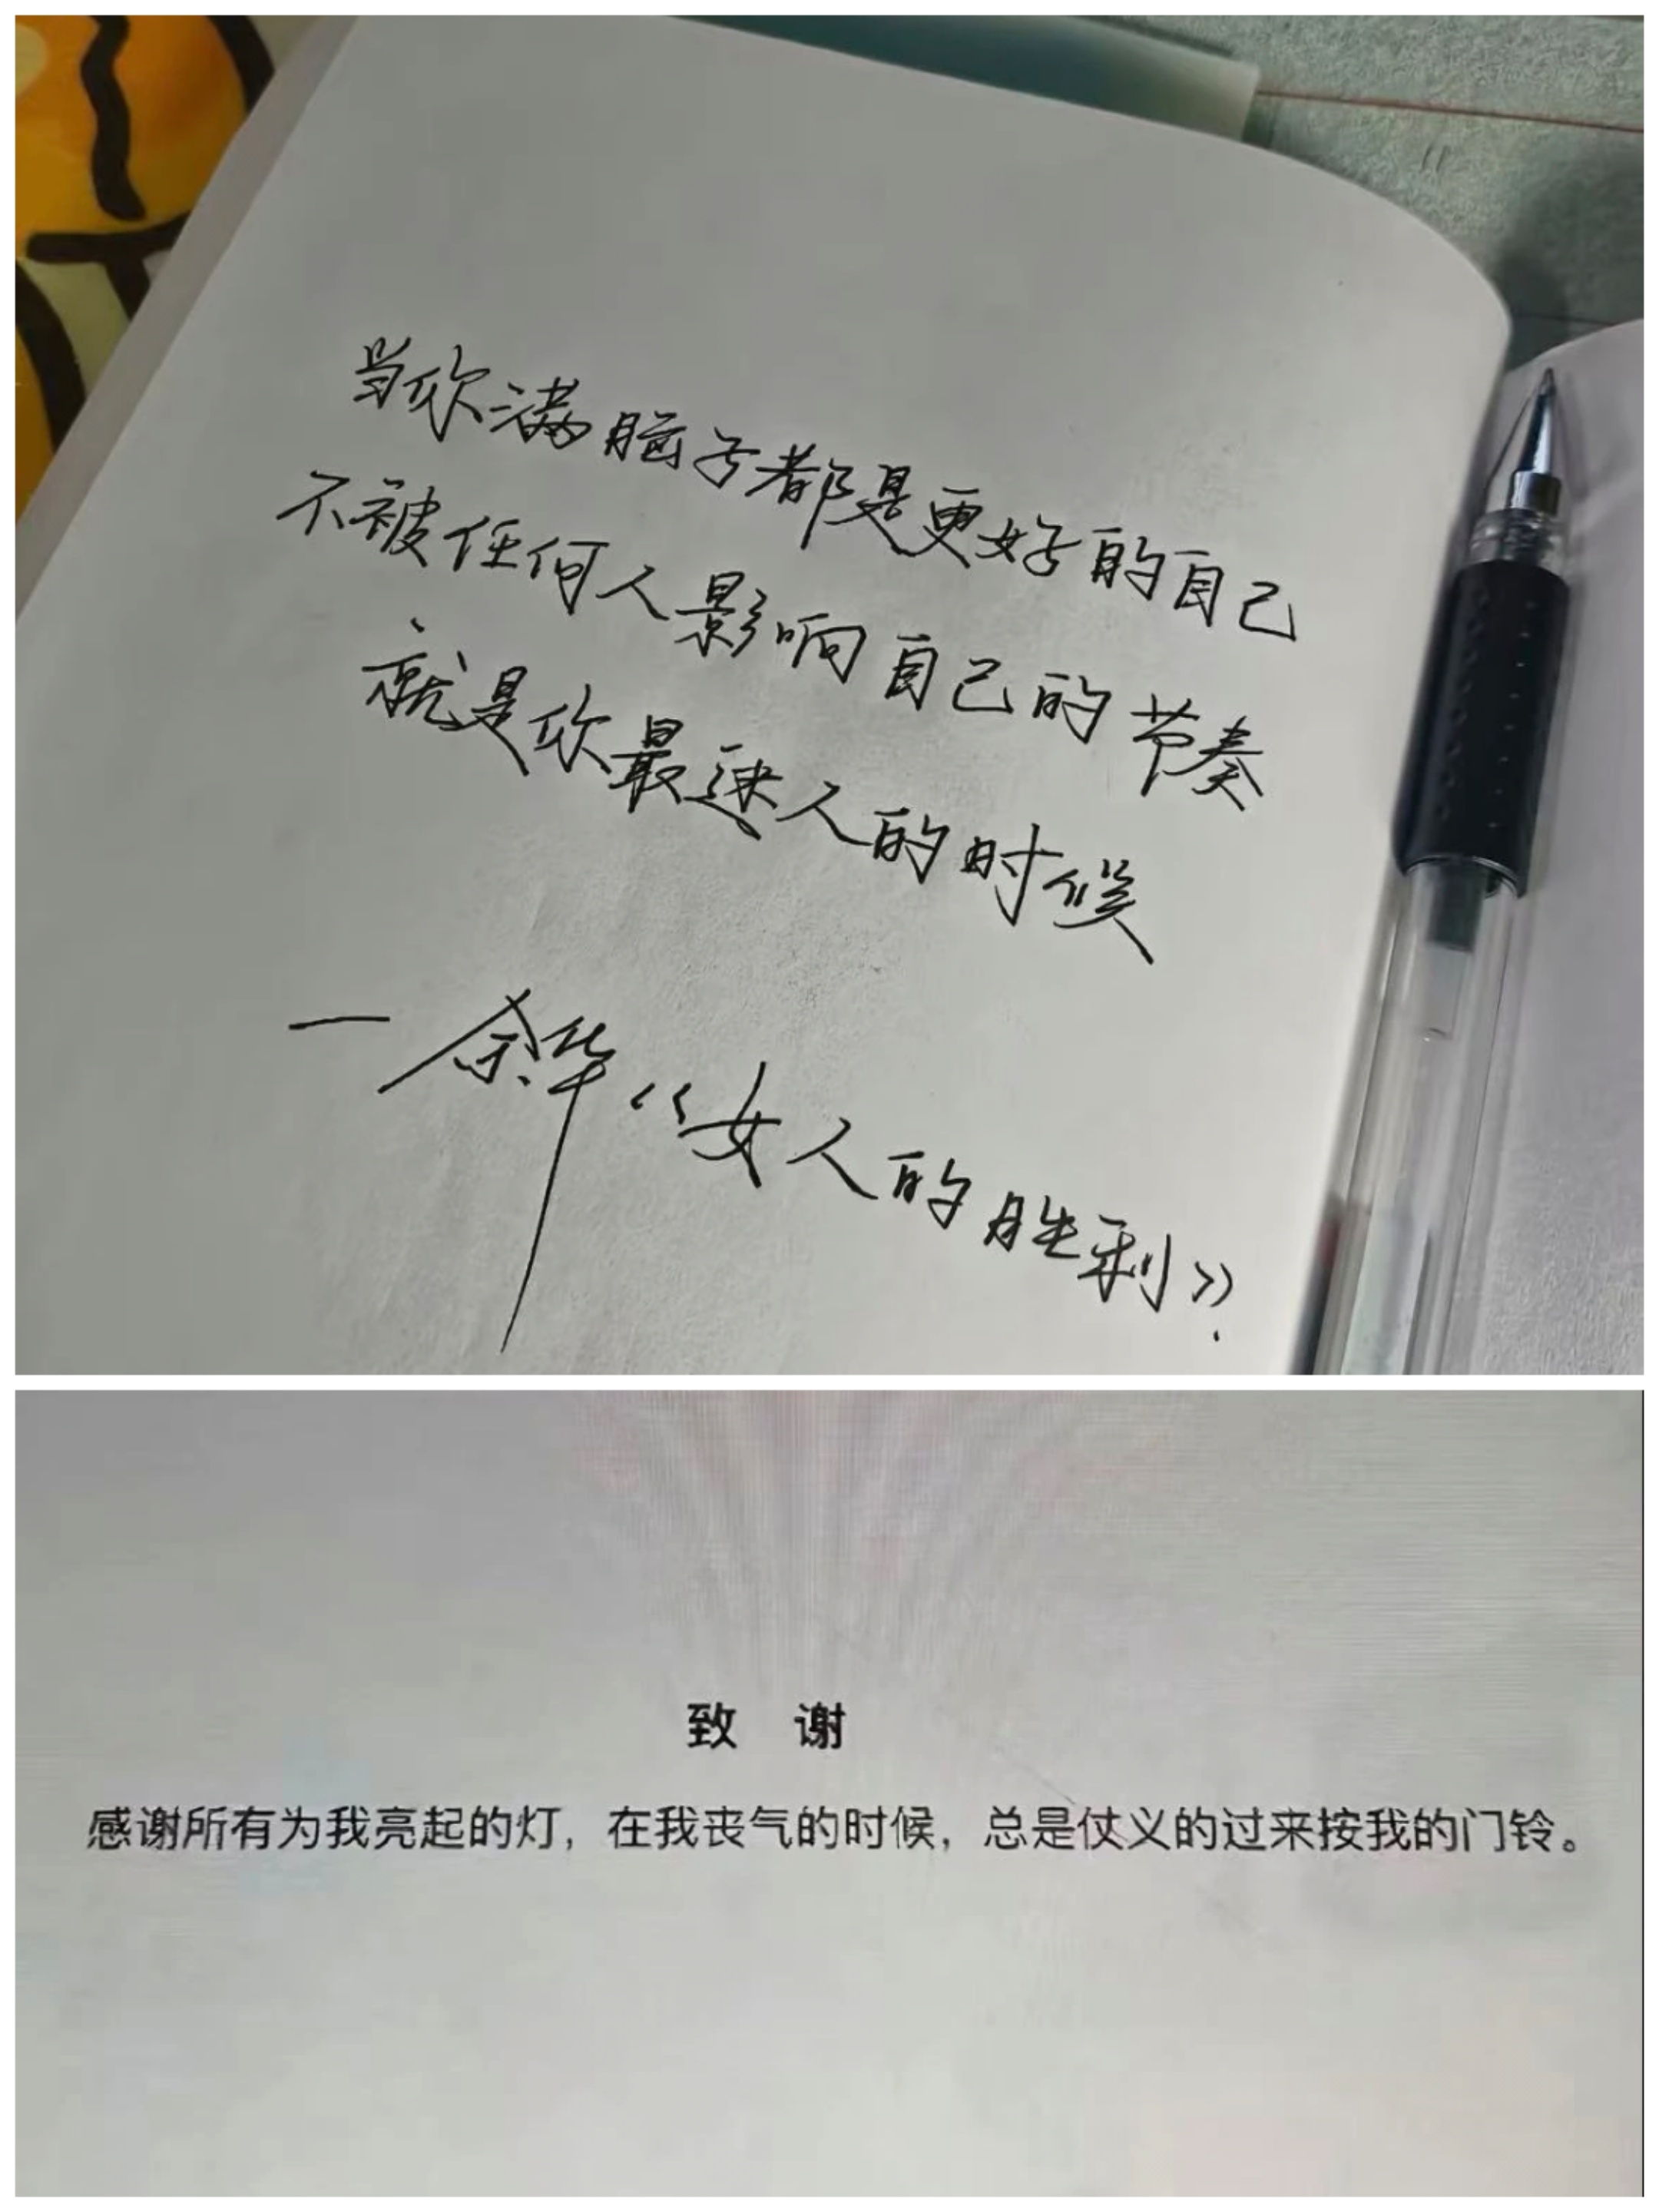 当你满脑子都是更好的自己
不被任何人影响自己的节奏
就是你最迷人的时候
一余华《女人的胜利》.
致 谢
感谢所有为我亮起的灯，在我丧气的时候，总是仗义的过来按我的门铃。